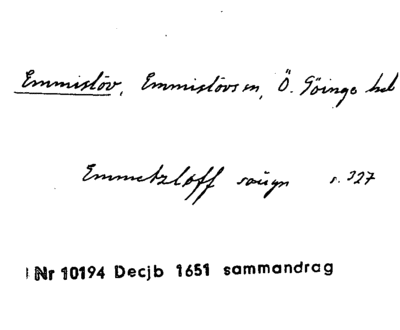 Emmislöv, Emmislövs sn, Ö. Göinge hd
Emmetzlöff soügn s. 327
Nr 10194 Decjb 1651 sammandrag